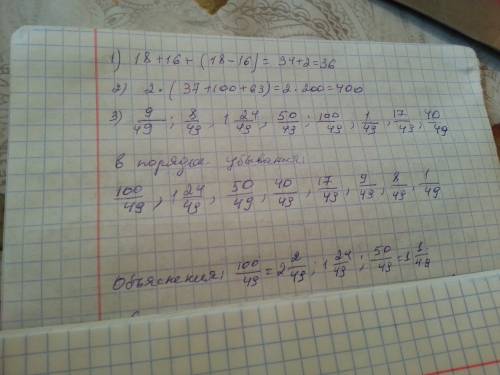 1) 18+16+(18-16)= 34+2=36
2) 2·(37+100+63)=2·200=400
3) 9/49; 8/49, 1 24/49, 50/49; 100/49, 1/49, 17/49, 40/49
в порядке убывания:
100/49, 1 24/49, 50/49, 40/49, 17/49, 9/49, 8/49, 1/49
Объяснения: 100/49=2 2/49; 1 24/49; 50/49=1 1/49